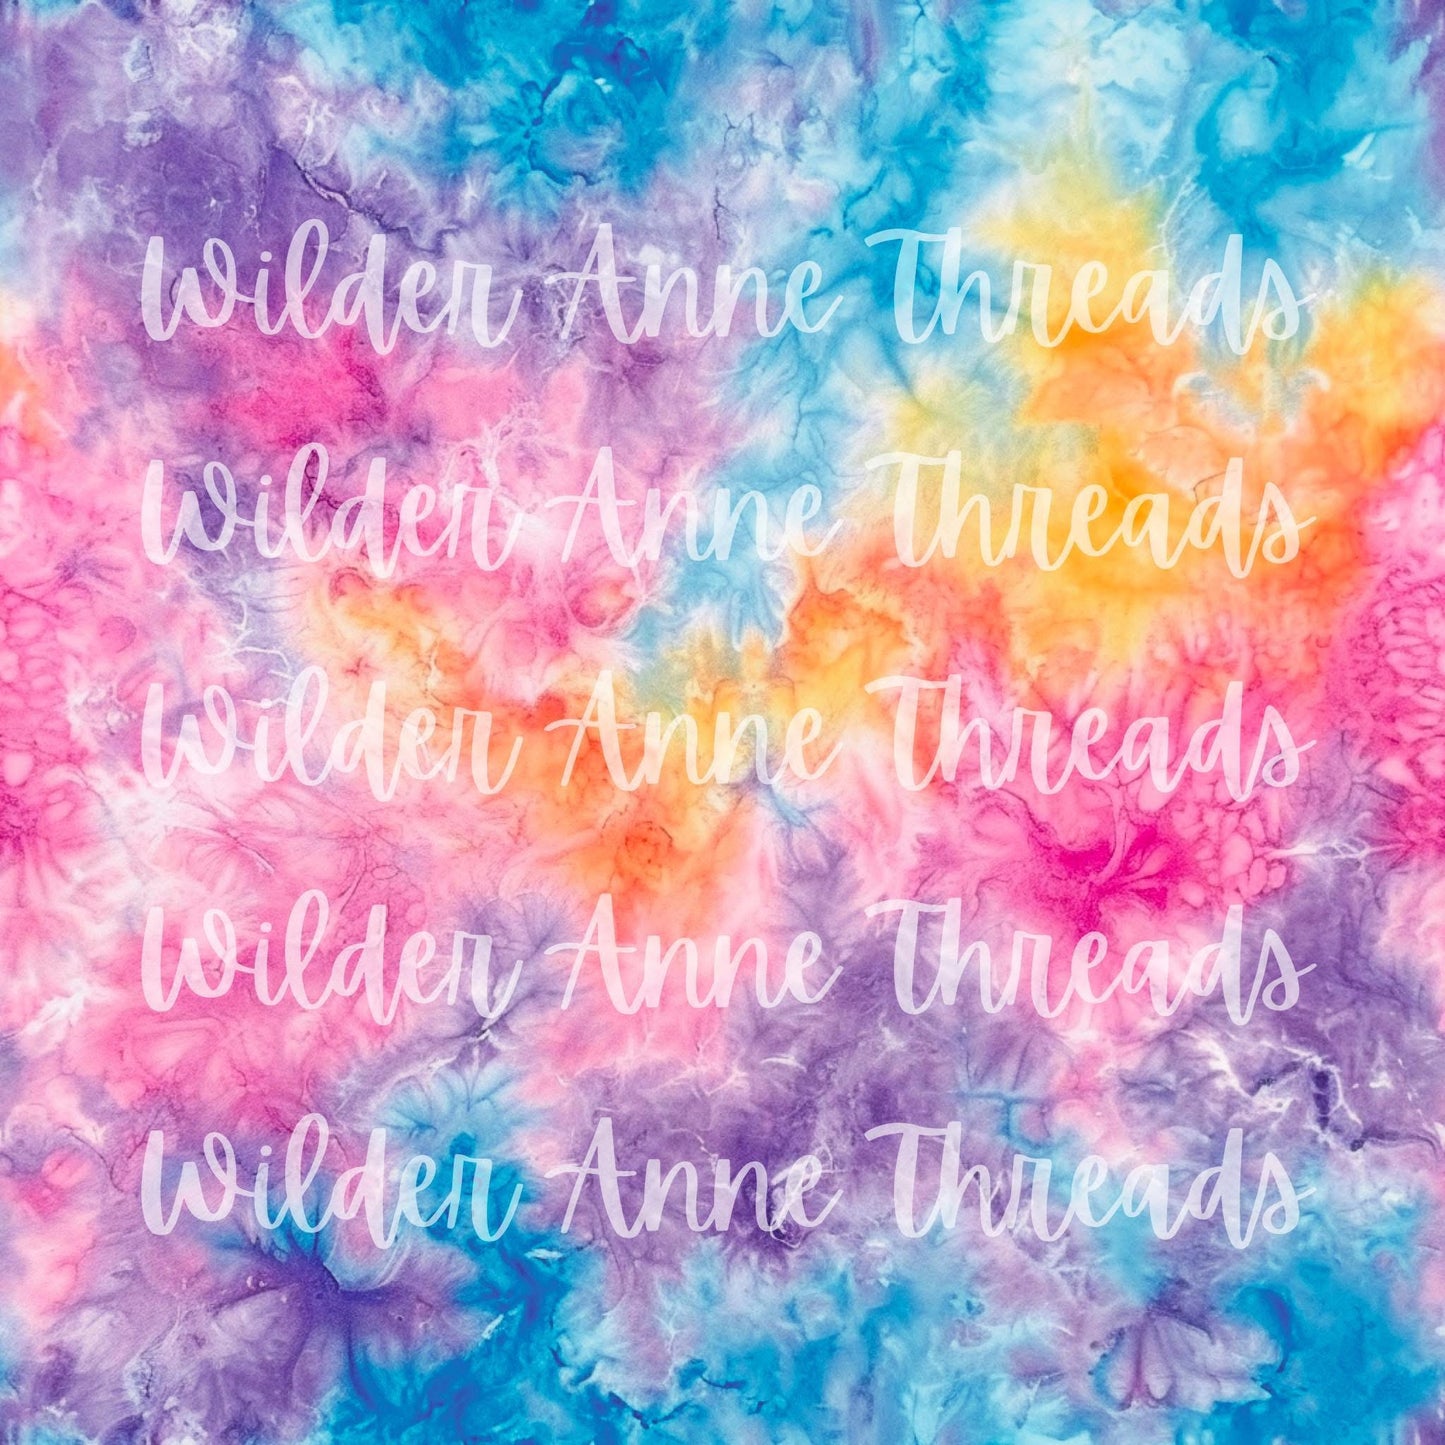 Wilder Anne Threads
Wilder Anne Threads
Wilder Anne Threads
Wilder Anne Threads
Wilder Anne Threads